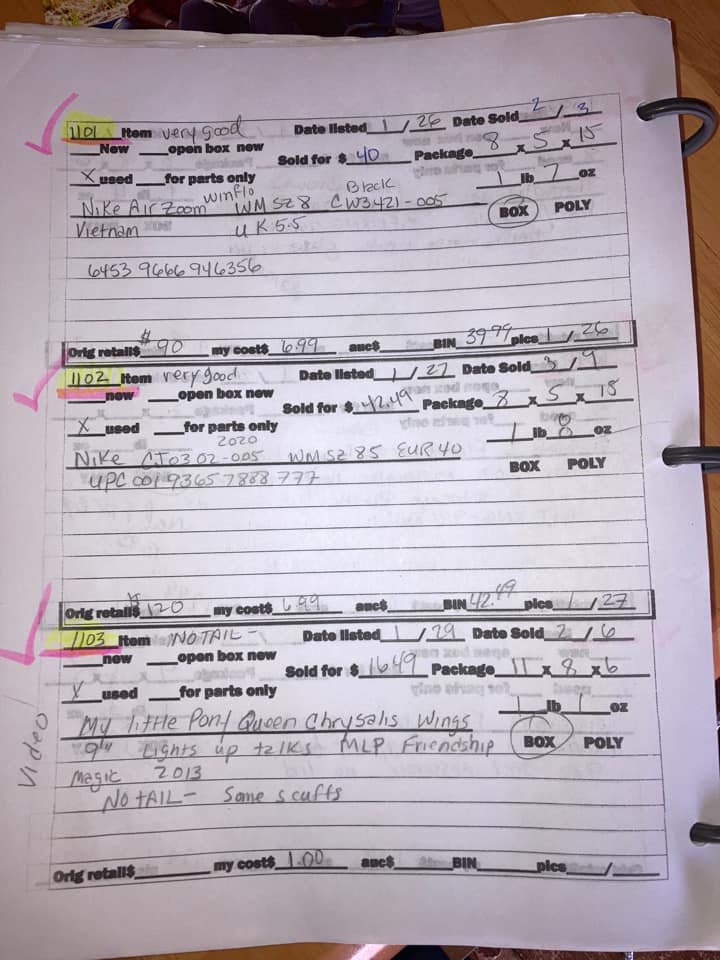 1101 Item very good Date listed 1/26 Date Sold 2/3
New open box new Sold for $ 40 Package 8 x 5 x 15
X used for parts only 1 lb 7 oz
Nike Air Zoom winflo WM SZ 8 Black CW3421-005 BOX POLY
Vietnam UK 5.5
6453 9666 946356
Orig retail$ $90 my cost$ 6.99 auc$ BIN 39.99 pics 1/26
1102 Item very good Date listed 1/27 Date Sold 3/9
new open box new Sold for $ 42.49 Package 8 x 5 x 15
X used for parts only 1 lb 8 oz
2020
Nike CJ0302-005 WM SZ 8.5 EUR 40 BOX POLY
UPC 00193657888777
Orig retail$ $120 my cost$ 6.99 auc$ BIN 42.49 pics 1/27
1103 Item NO TAIL - Date listed 1/29 Date Sold 2/6
new open box new Sold for $ 16.49 Package 11 x 8 x 6
X used for parts only 1 lb 1 oz
My little Pony Queen Chrysalis Wings
9" Lights up talks MLP Friendship BOX POLY
Magic 2013
NO TAIL - Some scuffs
Video
Orig retail$ my cost$ 1.00 auc$ BIN pics /